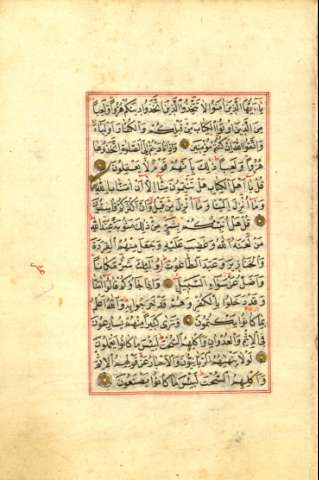 يَا أَيُّهَا الَّذِينَ آمَنُوا لَا تَتَّخِذُوا الَّذِينَ اتَّخَذُوا دِينَكُمْ هُزُوًا وَلَعِبًا
مِنَ الَّذِينَ أُوتُوا الْكِتَابَ مِنْ قَبْلِكُمْ وَالْكُفَّارَ أَوْلِيَاءَ
وَاتَّقُوا اللَّهَ إِنْ كُنْتُمْ مُؤْمِنِينَ وَإِذَا نَادَيْتُمْ إِلَى الصَّلَاةِ اتَّخَذُوهَا
هُزُوًا وَلَعِبًا ذَلِكَ بِأَنَّهُمْ قَوْمٌ لَا يَعْقِلُونَ
قُلْ يَا أَهْلَ الْكِتَابِ هَلْ تَنْقِمُونَ مِنَّا إِلَّا أَنْ آمَنَّا بِاللَّهِ
وَمَا أُنْزِلَ إِلَيْنَا وَمَا أُنْزِلَ مِنْ قَبْلُ وَأَنَّ أَكْثَرَكُمْ فَاسِقُونَ
قُلْ هَلْ أُنَبِّئُكُمْ بِشَرٍّ مِنْ ذَلِكَ مَثُوبَةً عِنْدَ اللَّهِ
مَنْ لَعَنَهُ اللَّهُ وَغَضِبَ عَلَيْهِ وَجَعَلَ مِنْهُمُ الْقِرَدَةَ
وَالْخَنَازِيرَ وَعَبَدَ الطَّاغُوتَ أُولَئِكَ شَرٌّ مَكَانًا
وَأَضَلُّ عَنْ سَوَاءِ السَّبِيلِ وَإِذَا جَاءُوكُمْ قَالُوا آمَنَّا
وَقَدْ دَخَلُوا بِالْكُفْرِ وَهُمْ قَدْ خَرَجُوا بِهِ وَاللَّهُ أَعْلَمُ
بِمَا كَانُوا يَكْتُمُونَ وَتَرَى كَثِيرًا مِنْهُمْ يُسَارِعُونَ
فِي الْإِثْمِ وَالْعُدْوَانِ وَأَكْلِهِمُ السُّحْتَ لَبِئْسَ مَا كَانُوا يَعْمَلُونَ
لَوْلَا يَنْهَاهُمُ الرَّبَّانِيُّونَ وَالْأَحْبَارُ عَنْ قَوْلِهِمُ الْإِثْمَ
وَأَكْلِهِمُ السُّحْتَ لَبِئْسَ مَا كَانُوا يَصْنَعُونَ